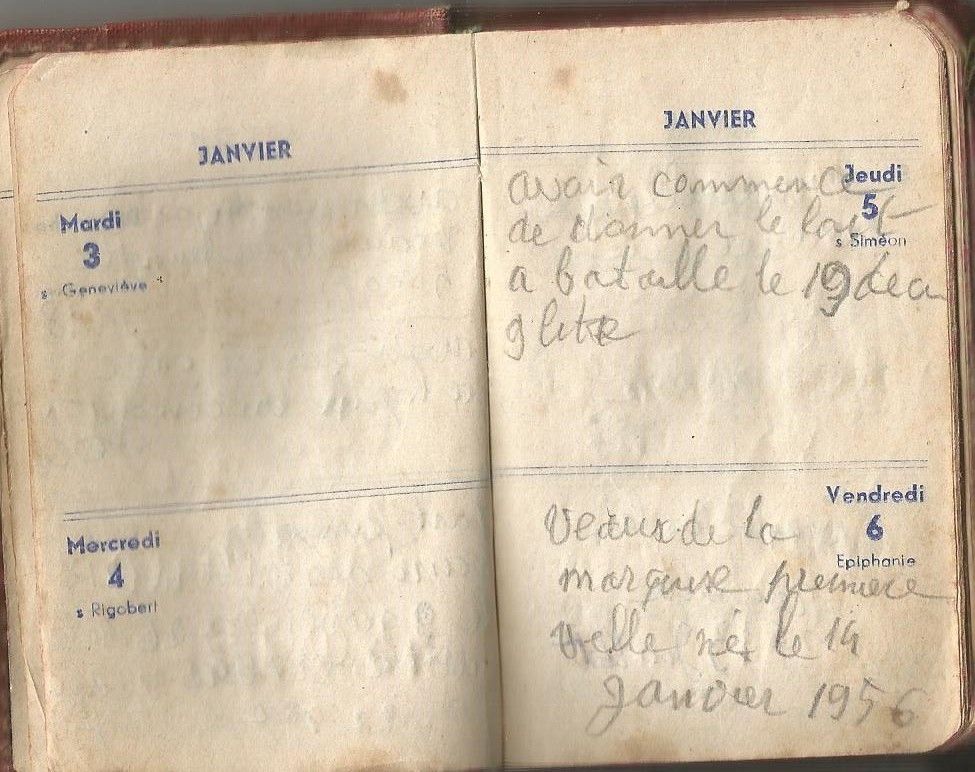 JANVIER
Mardi
3
s Geneviève
Mercredi
4
s Rigobert
JANVIER
Jeudi
5
s Siméon
avair commence
de donner le lait
a bataille le 19 dea
9 litre
Vendredi
6
Epiphanie
Veaux de la
marquise premiere
velle né le 14
Janvier 1956